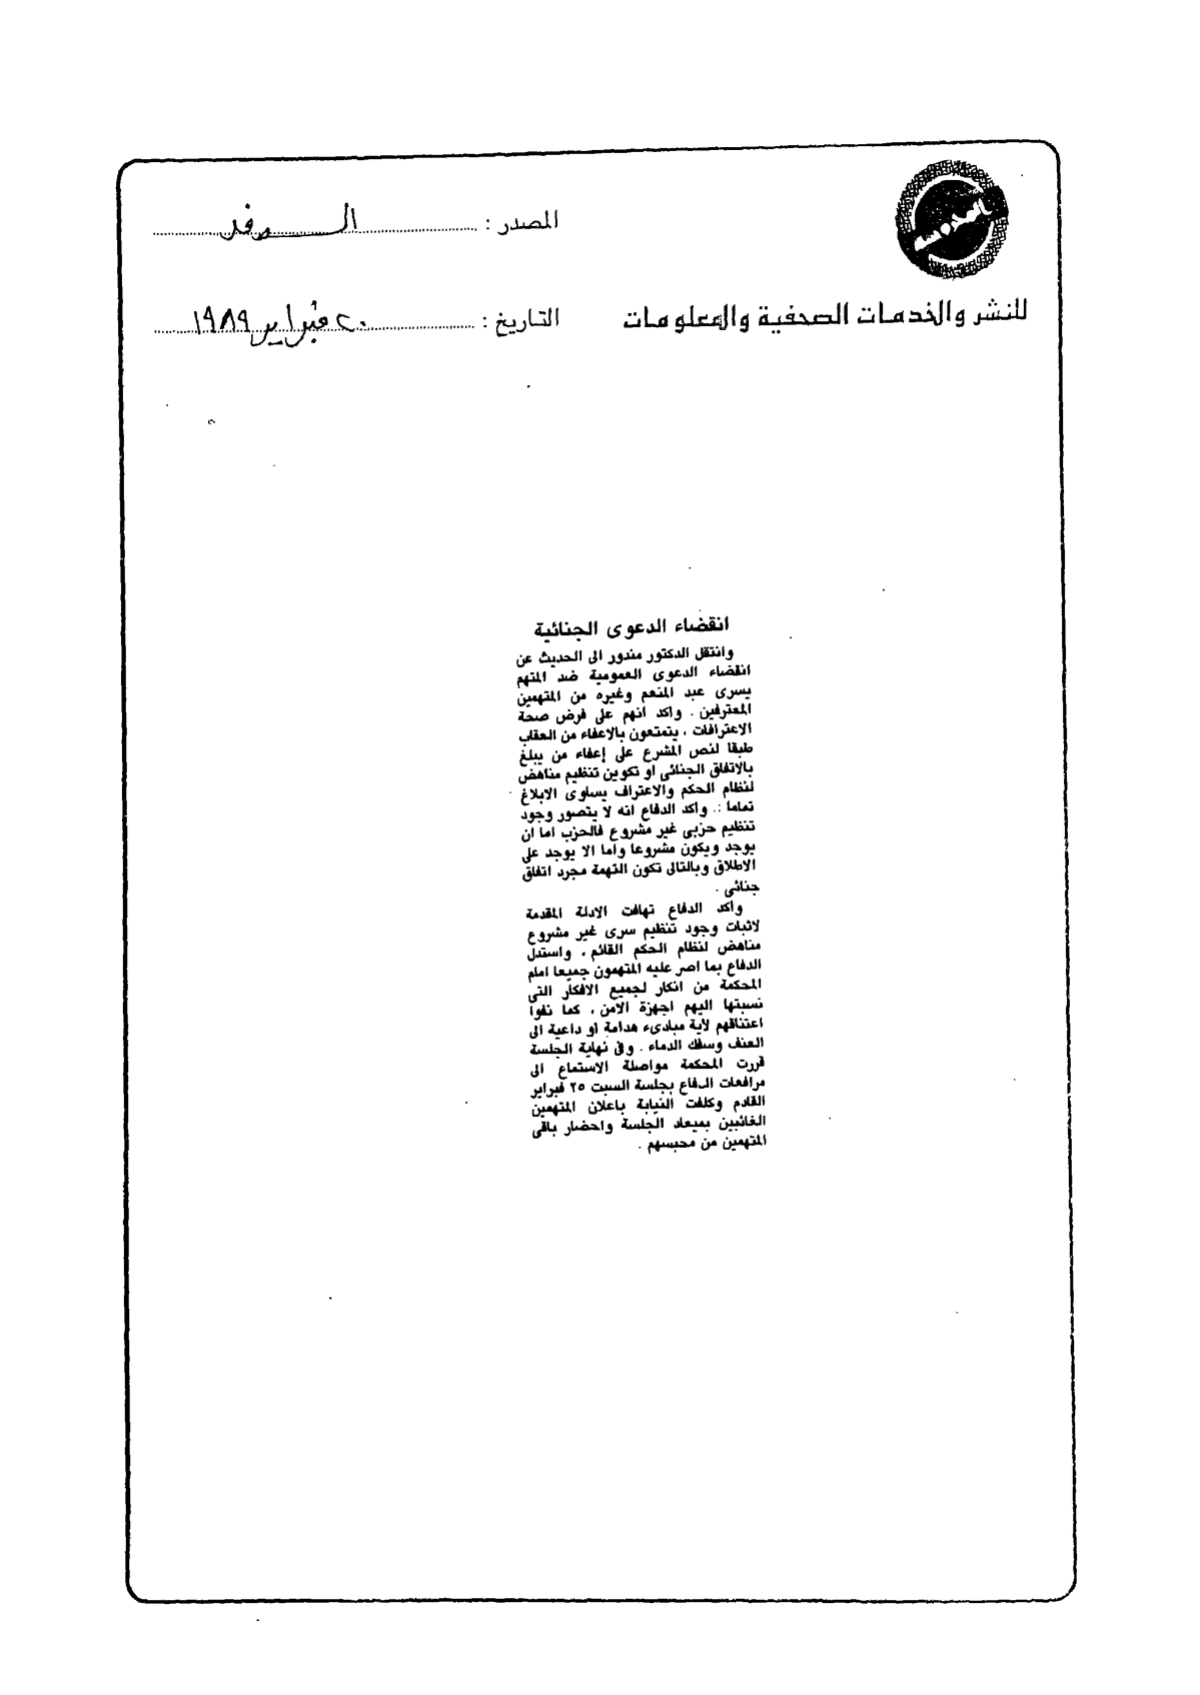 المصدر : الـوفد
للنشر والخدمات الصحفية والمعلومات
التاريخ : ٢٠ فبراير ١٩٨٩
انقضاء الدعوى الجنائية
وانتقل الدكتور مندور الى الحديث عن
انقضاء الدعوى العمومية ضد المتهم
يسرى عبد المنعم وغيره من المتهمين
المعترفين . واكد انهم على فرض صحة
الاعترافات ، يتمتعون بالاعفاء من العقاب
طبقا لنص المشرع على إعفاء من يبلغ
بالاتفاق الجنائى او تكوين تنظيم مناهض
لنظام الحكم والاعتراف يساوى الابلاغ
تماما . واكد الدفاع انه لا يتصور وجود
تنظيم حزبى غير مشروع فالحزب اما ان
يوجد ويكون مشروعا واما الا يوجد على
الاطلاق وبالتالى تكون التهمة مجرد اتفاق
جنائى .
واكد الدفاع تهافت الادلة المقدمة
لاثبات وجود تنظيم سرى غير مشروع
مناهض لنظام الحكم القائم ، واستدل
الدفاع بما اصر عليه المتهمون جميعا امام
المحكمة من انكار لجميع الافكار التى
نسبتها اليهم اجهزة الامن ، كما نفوا
اعتناقهم لاية مبادىء هدامة او داعية الى
العنف وسفك الدماء . وفى نهاية الجلسة
قررت المحكمة مواصلة الاستماع الى
مرافعات الدفاع بجلسة السبت ٢٥ فبراير
القادم وكلفت النيابة باعلان المتهمين
الغائبين بميعاد الجلسة واحضار باقى
المتهمين من محبسهم .